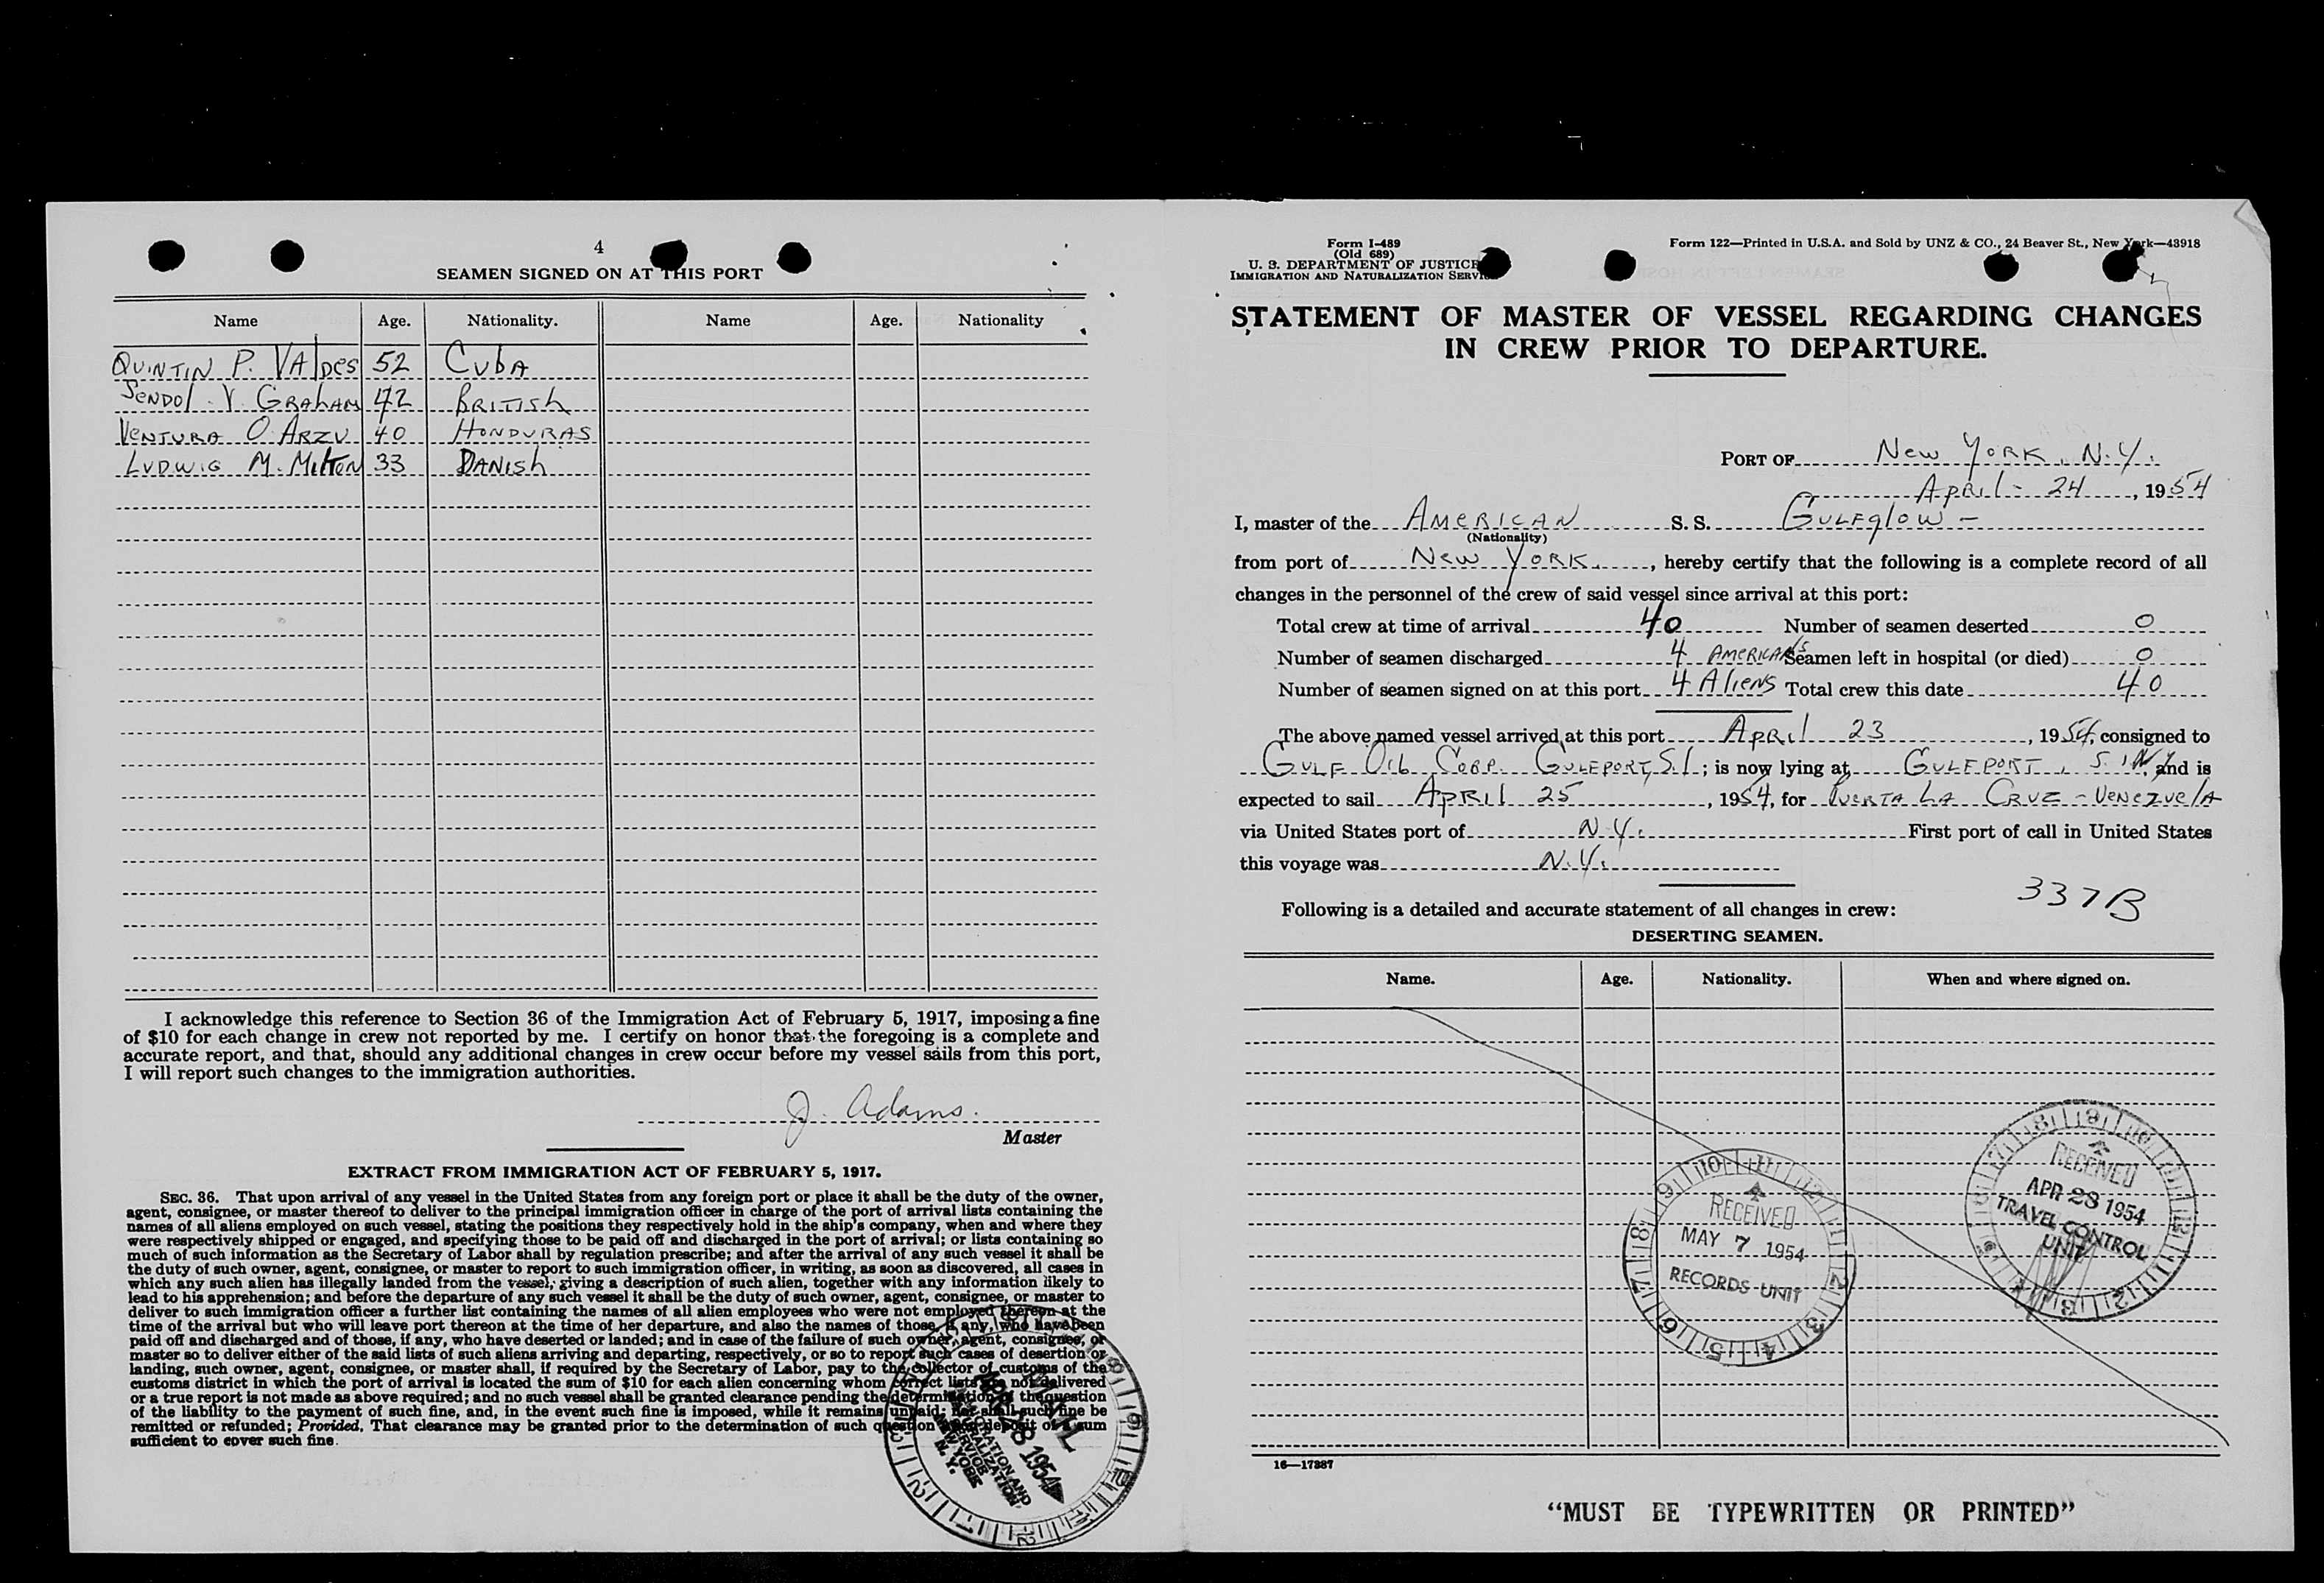 4
SEAMEN SIGNED ON AT THIS PORT
Name Age. Nationality. Name Age. Nationality
QUINTIN P. VALDES 52 CUBA
SENDOL V. GRAHAM 42 BRITISH
VENTURA O. ARZU 40 HONDURAS
LUDWIG M. MILTON 33 DANISH
I acknowledge this reference to Section 36 of the Immigration Act of February 5, 1917, imposing a fine
of $10 for each change in crew not reported by me. I certify on honor that the foregoing is a complete and
accurate report, and that, should any additional changes in crew occur before my vessel sails from this port,
I will report such changes to the immigration authorities.
J. Adams.
Master
EXTRACT FROM IMMIGRATION ACT OF FEBRUARY 5, 1917.
SEC. 36. That upon arrival of any vessel in the United States from any foreign port or place it shall be the duty of the owner,
agent, consignee, or master thereof to deliver to the principal immigration officer in charge of the port of arrival lists containing the
names of all aliens employed on such vessel, stating the positions they respectively hold in the ship's company, when and where they
were respectively shipped or engaged, and specifying those to be paid off and discharged in the port of arrival; or lists containing so
much of such information as the Secretary of Labor shall by regulation prescribe; and after the arrival of any such vessel it shall be
the duty of such owner, agent, consignee, or master to report to such immigration officer, in writing, as soon as discovered, all cases in
which any such alien has illegally landed from the vessel, giving a description of such alien, together with any information likely to
lead to his apprehension; and before the departure of any such vessel it shall be the duty of such owner, agent, consignee, or master to
deliver to such immigration officer a further list containing the names of all alien employees who were not employed thereon at the
time of the arrival but who will leave port thereon at the time of her departure, and also the names of those, if any, who have been
paid off and discharged and of those, if any, who have deserted or landed; and in case of the failure of such owner, agent, consignee, or
master so to deliver either of the said lists of such aliens arriving and departing, respectively, or so to report such cases of desertion or
landing, such owner, agent, consignee, or master shall, if required by the Secretary of Labor, pay to the collector of customs of the
customs district in which the port of arrival is located the sum of $10 for each alien concerning whom correct lists are not delivered
or a true report is not made as above required; and no such vessel shall be granted clearance pending the determination of the question
of the liability to the payment of such fine, and, in the event such fine is imposed, while it remains unpaid; nor shall such fine be
remitted or refunded; Provided, That clearance may be granted prior to the determination of such question upon deposit of a sum
sufficient to cover such fine.
MAIL
APR 28 1954
IMMIGRATION AND
NATURALIZATION
SERVICE
NEW YORK
N. Y.
Form I-489
(Old 689)
U. S. DEPARTMENT OF JUSTICE
IMMIGRATION AND NATURALIZATION SERVICE
Form 122—Printed in U.S.A. and Sold by UNZ & CO., 24 Beaver St., New York—43918
STATEMENT OF MASTER OF VESSEL REGARDING CHANGES
IN CREW PRIOR TO DEPARTURE.
PORT OF New York, N.Y.
April - 24, 1954
I, master of the AMERICAN S. S. GULFGLOW -
(Nationality)
from port of New York, hereby certify that the following is a complete record of all
changes in the personnel of the crew of said vessel since arrival at this port:
Total crew at time of arrival 40 Number of seamen deserted 0
Number of seamen discharged 4 AMERICANS Seamen left in hospital (or died) 0
Number of seamen signed on at this port 4 Aliens Total crew this date 40
The above named vessel arrived at this port April 23, 1954, consigned to
GULF OIL CORP. GULFPORT, S.I.; is now lying at GULFPORT, S.I. N.Y. and is
expected to sail APRIL 25, 1954, for PUERTA LA CRUZ - VENEZUELA
via United States port of N.Y. First port of call in United States
this voyage was N.Y.
337B
Following is a detailed and accurate statement of all changes in crew:
DESERTING SEAMEN.
Name. Age. Nationality. When and where signed on.
RECEIVED
MAY 7 1954
RECORDS UNIT
RECEIVED
APR 28 1954
TRAVEL CONTROL
UNIT
16—17387
"MUST BE TYPEWRITTEN OR PRINTED"